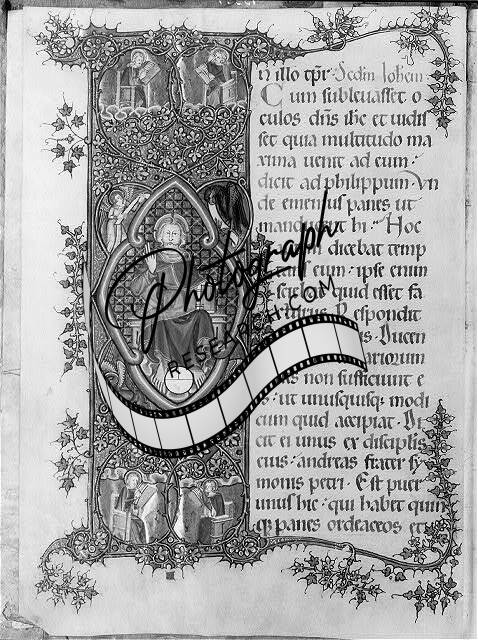 n illo tp̄r · Scdm Iohem
Cum subleuasset o
culos dn̄s ih̄c et uidis
set quia multitudo ma
xima uenit ad eum ·
dicit ad philippum · Vn
de ememus panes ut
manducent hi · Hoc
dicebat temp
eum · ipse enim
quid esset fa
Respondit
Ducen
ariorum
non sufficiunt e
ut unusquisq; modi
cum quid accipiat · Di
cit ei unus ex disciplis
eius · andreas frater sy
monis petri · Est puer
unus hic · qui habet quin
q; panes ordeaceos et
Photograph
RESEARCH.COM